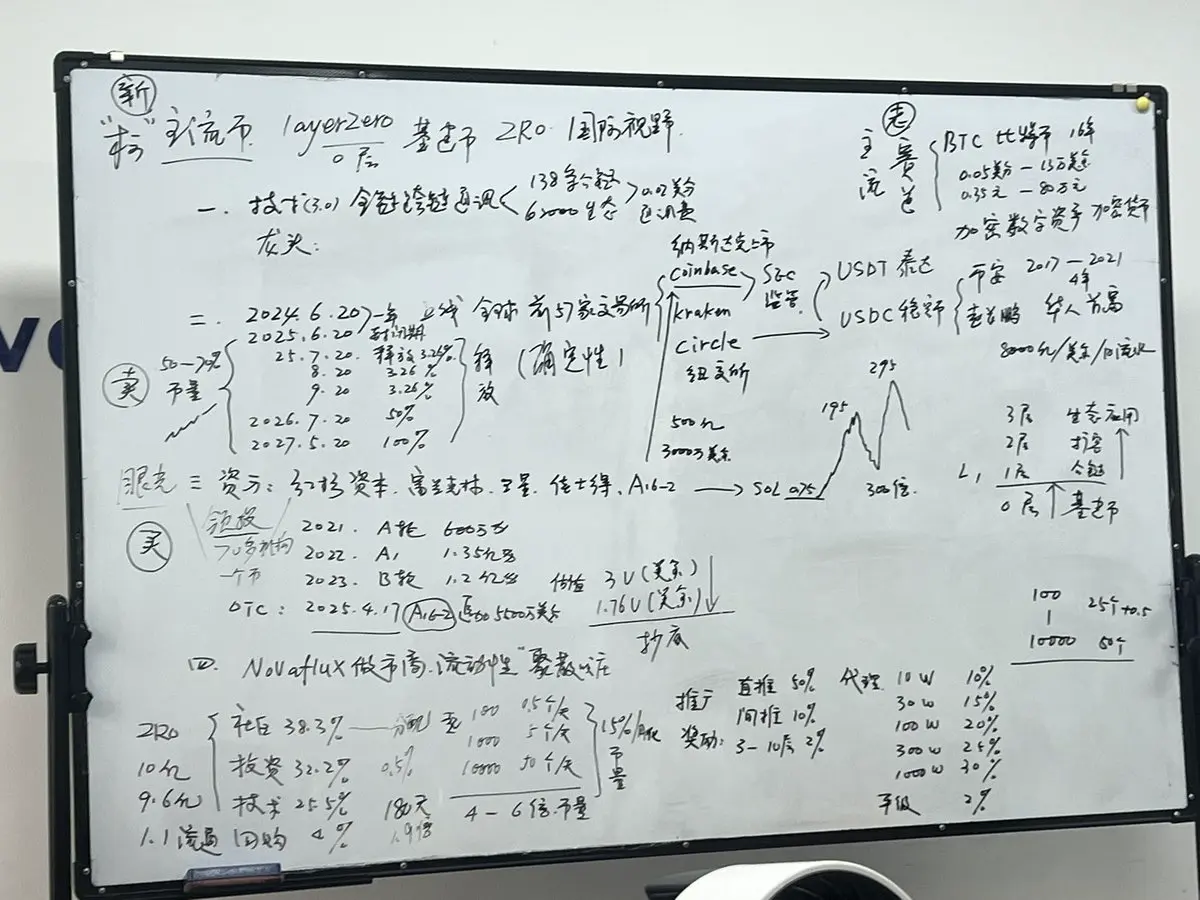 新
"新" 主流币 layerZero 基建币 ZRO. 国际视野.
0层
一. 技术(3.0) 全链跨链通讯 138条公链 0.02美分
62000生态 通讯费
龙头:
二. 2024.6.20 一年 上线 全球前57家交易所
2025.6.20 封闭期
25.7.20. 释放3.26%
8.20 3.26%
9.20 3.26%
2026.7.20 50%
2027.5.20 100%
释放
(确定性)
卖
50-70%
币量
纳斯达克上市
coinbase
kraken
circle
纽交所
SEC
监管
USDT 泰达
USDC 稳币
500亿
3000万美金
老
主流
赛道
BTC 比特币 16年
0.05美分-13万美金
0.35元-80万元
加密数字资产 加密货币
币安 2017-2021
4年
赵长鹏 华人首富
8000亿/美金/日流水
195
295
3层 生态应用
2层 扩容
L1 1层 公链
0层 基建币
眼光 三 资方: 红杉资本. 富兰克林. 三星. 佳士得. A16-2 SOL 0.75 300倍.
买
领投
70多机构
一个币
2021. A轮 600万$
2022. A1 1.35亿$
2023. B轮 1.2亿$ 估值 3U(美金)
OTC: 2025.4.17 A16-2 5500万美金 1.76U(美金)
抄底
100 25个+0.5
1
10000 50个
四. Novaflux 做市商. 流动性 "聚散
ZRO
10亿
9.6亿
1.1流通
社区 38.3%
投资 32.2% 0.5%
技术 25.5% 180天
回购 4% 1.9倍
100 0.5个/天
1000 5个/天
10000 50个/天
4-6倍币量
15%/月化
币量
推广
奖励:
直推 50%
间推 10%
3-10层 2%
代理 10W 10%
30W 15%
100W 20%
300W 25%
1000W 30%
平级 2%